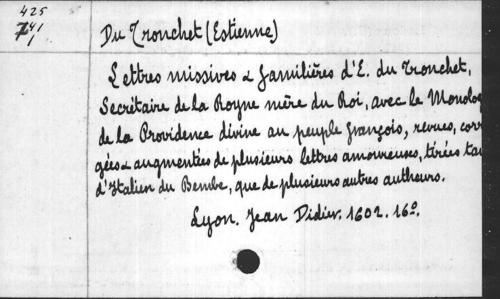 425
741
1
Du Tronchet (Estienne)
Lettres missives & familières d'E. du Tronchet,
Secrétaire de la Royne mère du Roi, avec le Monolog
de la Providence divine au peuple françois, revues, corr
gées & augmentées de plusieurs lettres amoureuses, tirées tan
d'Italien du Bembe, que de plusieurs autres autheurs.
Lyon. Jean Didier. 1602. 16º.